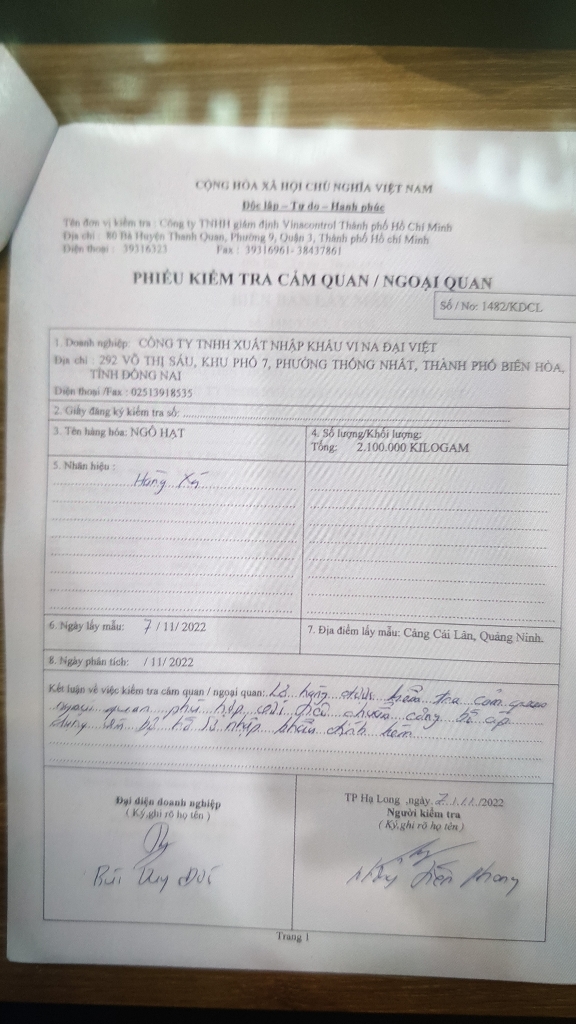 CỘNG HÒA XÃ HỘI CHỦ NGHĨA VIỆT NAM
Độc lập – Tự do – Hạnh phúc
Tên đơn vị kiểm tra : Công ty TNHH giám định Vinacontrol Thành phố Hồ Chí Minh
Địa chỉ : 80 Bà Huyện Thanh Quan, Phường 9, Quận 3, Thành phố Hồ Chí Minh
Điện thoại : 39316323 Fax : 39316961- 38437861
PHIẾU KIỂM TRA CẢM QUAN / NGOẠI QUAN
Số / No: 1482/KDCL
1. Doanh nghiệp: CÔNG TY TNHH XUẤT NHẬP KHẨU VI NA ĐẠI VIỆT
Địa chỉ : 292 VÕ THỊ SÁU, KHU PHỐ 7, PHƯỜNG THỐNG NHẤT, THÀNH PHỐ BIÊN HÒA,
TỈNH ĐỒNG NAI
Điện thoại /Fax : 02513918535
2. Giấy đăng ký kiểm tra số:
3. Tên hàng hóa: NGÔ HẠT
4. Số lượng/Khối lượng:
Tổng: 2.100.000 KILOGAM
5. Nhãn hiệu :
Hàng Xá
6. Ngày lấy mẫu: 7 / 11/ 2022
7. Địa điểm lấy mẫu: Cảng Cái Lân, Quảng Ninh.
8. Ngày phân tích: / 11/ 2022
Kết luận về việc kiểm tra cảm quan / ngoại quan: Lô hàng được kiểm tra cảm quan
ngoại quan phù hợp với tiêu chuẩn công bố áp
dụng và bộ hồ sơ nhập khẩu đính kèm
Đại diện doanh nghiệp
( Ký,ghi rõ họ tên )
Bùi Duy Đức
TP Hạ Long ,ngày 7/11/2022
Người kiểm tra
( Ký,ghi rõ họ tên )
Phong
Trang 1